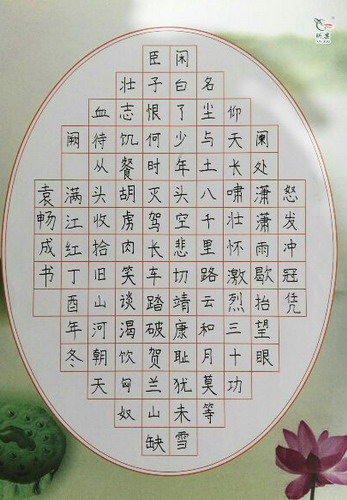 怒发冲冠凭
阑处潇潇雨歇抬望眼
仰天长啸壮怀激烈三十功
名尘与土八千里路云和月莫等
闲白了少年头空悲切靖康耻犹未雪
臣子恨何时灭驾长车踏破贺兰山缺
壮志饥餐胡虏肉笑谈渴饮匈奴
血待从头收拾旧山河朝天
阙 满江红丁酉年冬
袁畅成书